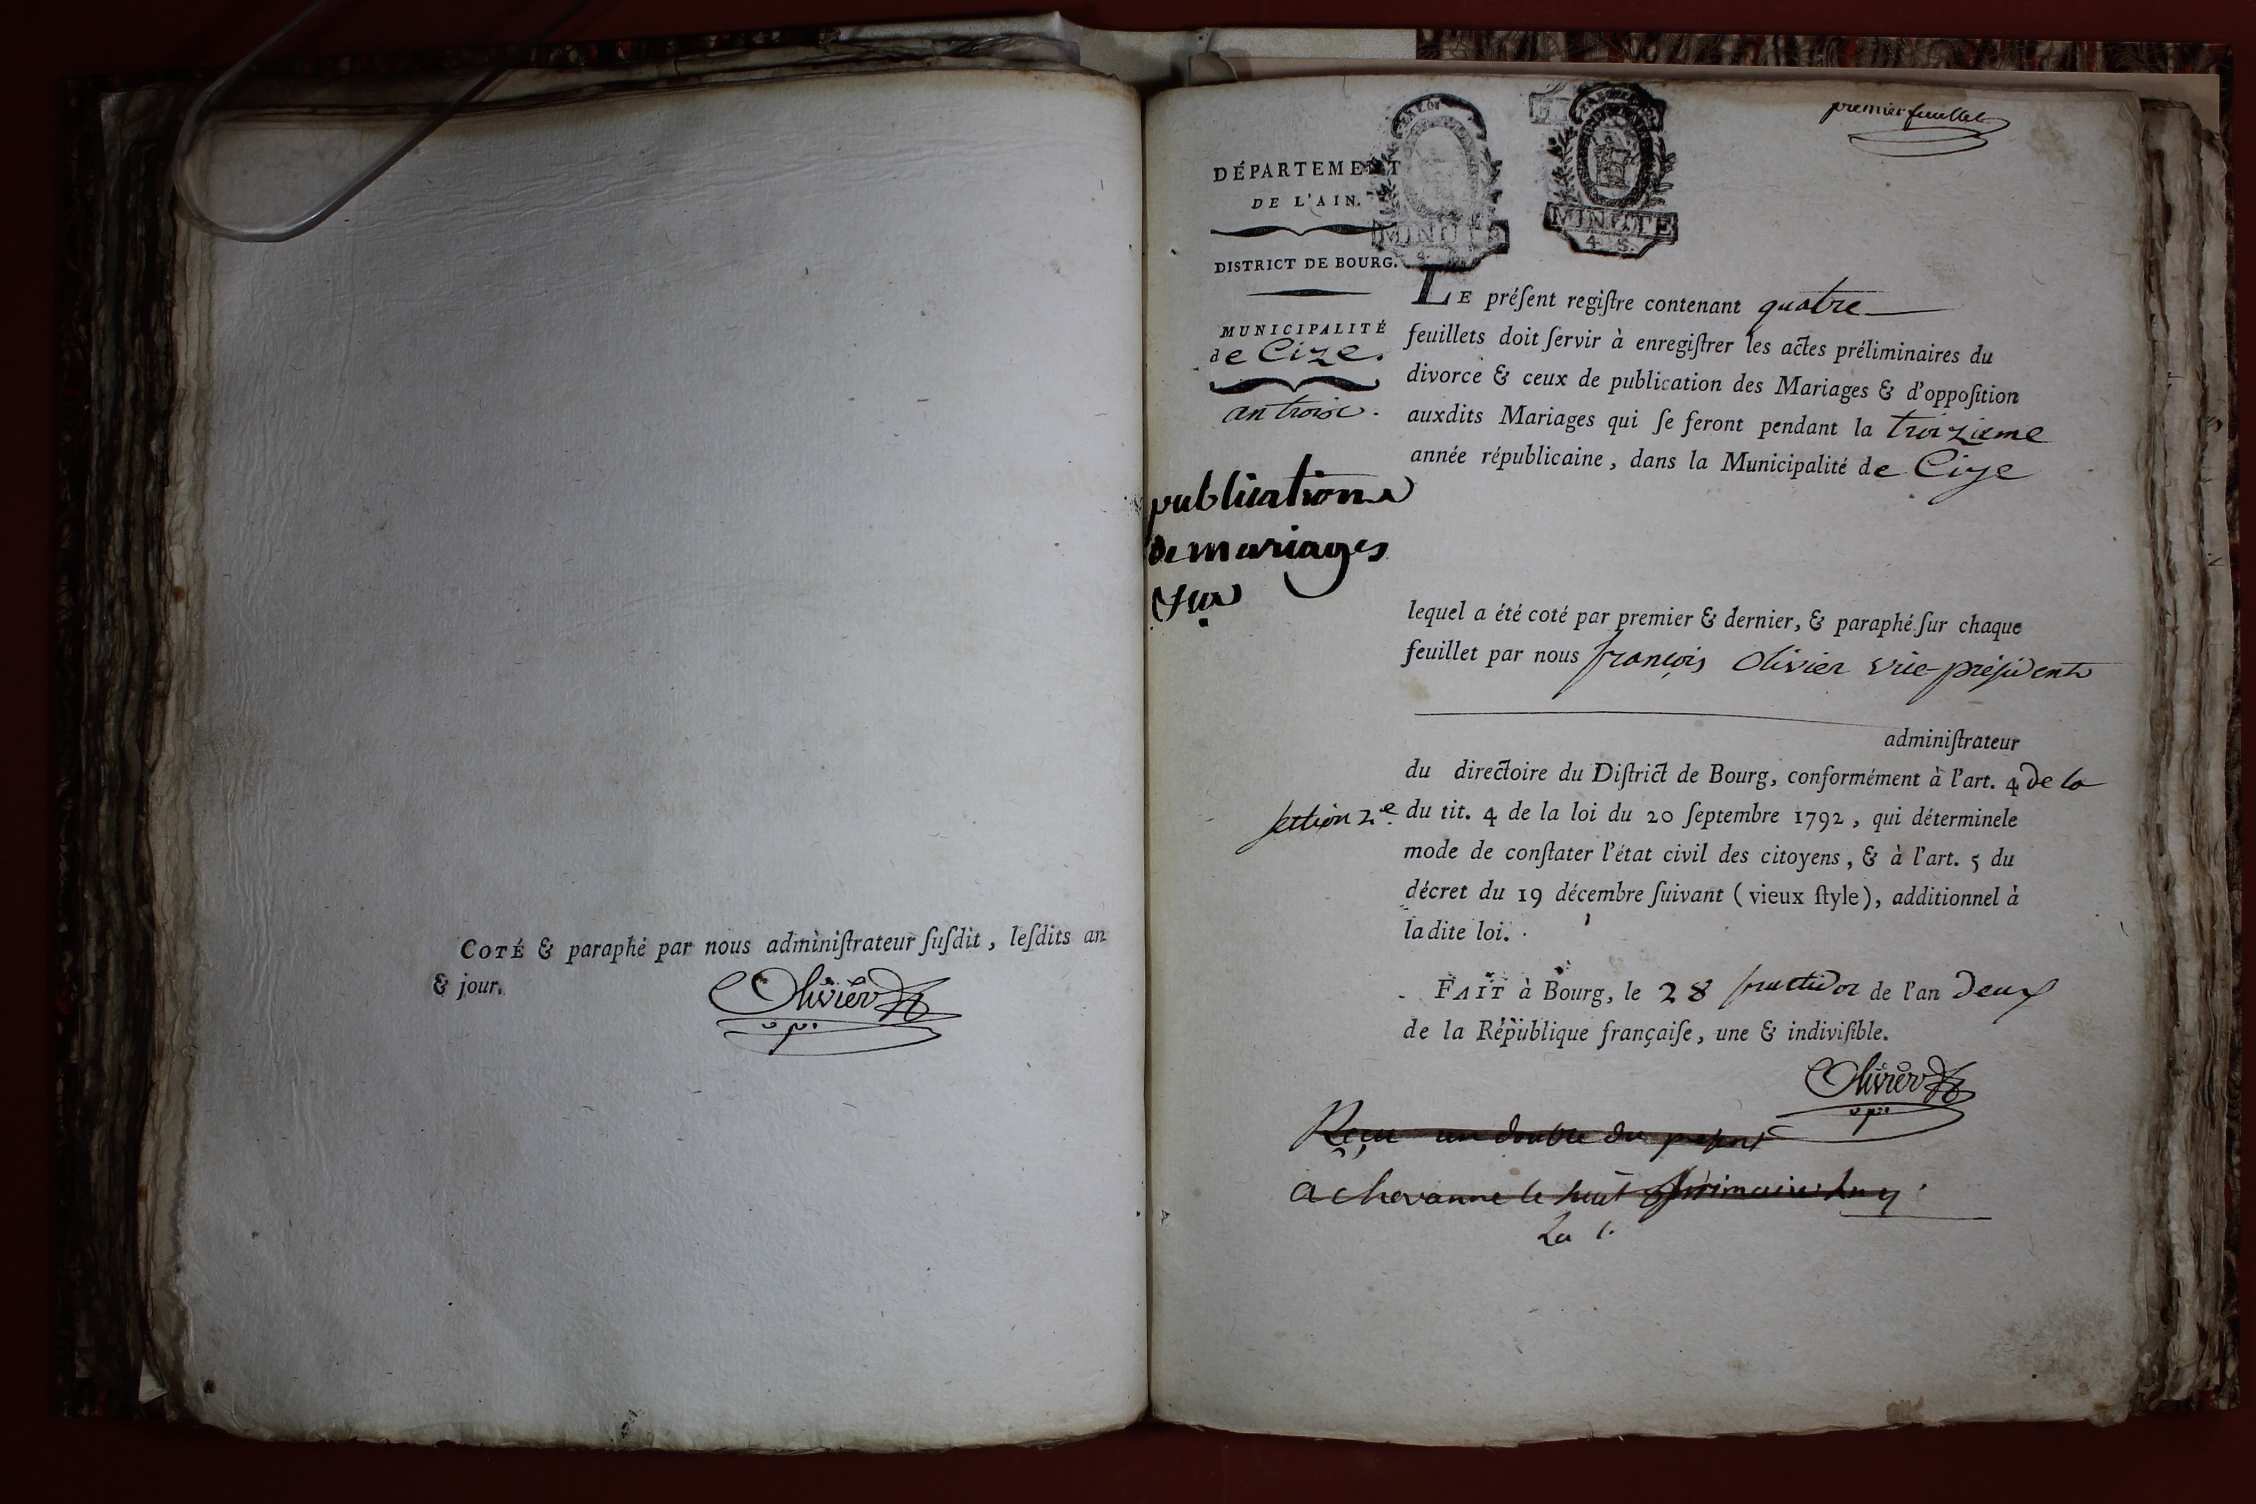 COTÉ & paraphé par nous adminiſtrateur ſuſdit, leſdits an
& jour.
Olivier
v pt
premier feuillet
LA LOI
MINUTE
4 s.
MINUTE
4 s.
DÉPARTEMENT
DE L'AIN.
DISTRICT DE BOURG.
MUNICIPALITÉ
de Cize.
an trois.
publications
de mariages
LE préſent regiſtre contenant quatre
feuillets doit ſervir à enregiſtrer les actes préliminaires du
divorce & ceux de publication des Mariages & d'oppoſition
auxdits Mariages qui ſe feront pendant la troizieme
année républicaine, dans la Municipalité de Cize
lequel a été coté par premier & dernier, & paraphé ſur chaque
feuillet par nous françois Olivier vice-préſident
adminiſtrateur
du directoire du Diſtrict de Bourg, conformément à l'art. 4 de la
section 2e. du tit. 4 de la loi du 20 ſeptembre 1792, qui déterminele
mode de conſtater l'état civil des citoyens, & à l'art. 5 du
décret du 19 décembre ſuivant (vieux ſtyle), additionnel à
ladite loi.
FAIT à Bourg, le 28 fructidor de l'an deux
de la République françaiſe, une & indiviſible.
Olivier
v pt
Reçu un double du present
a chavanne le huit frimaire